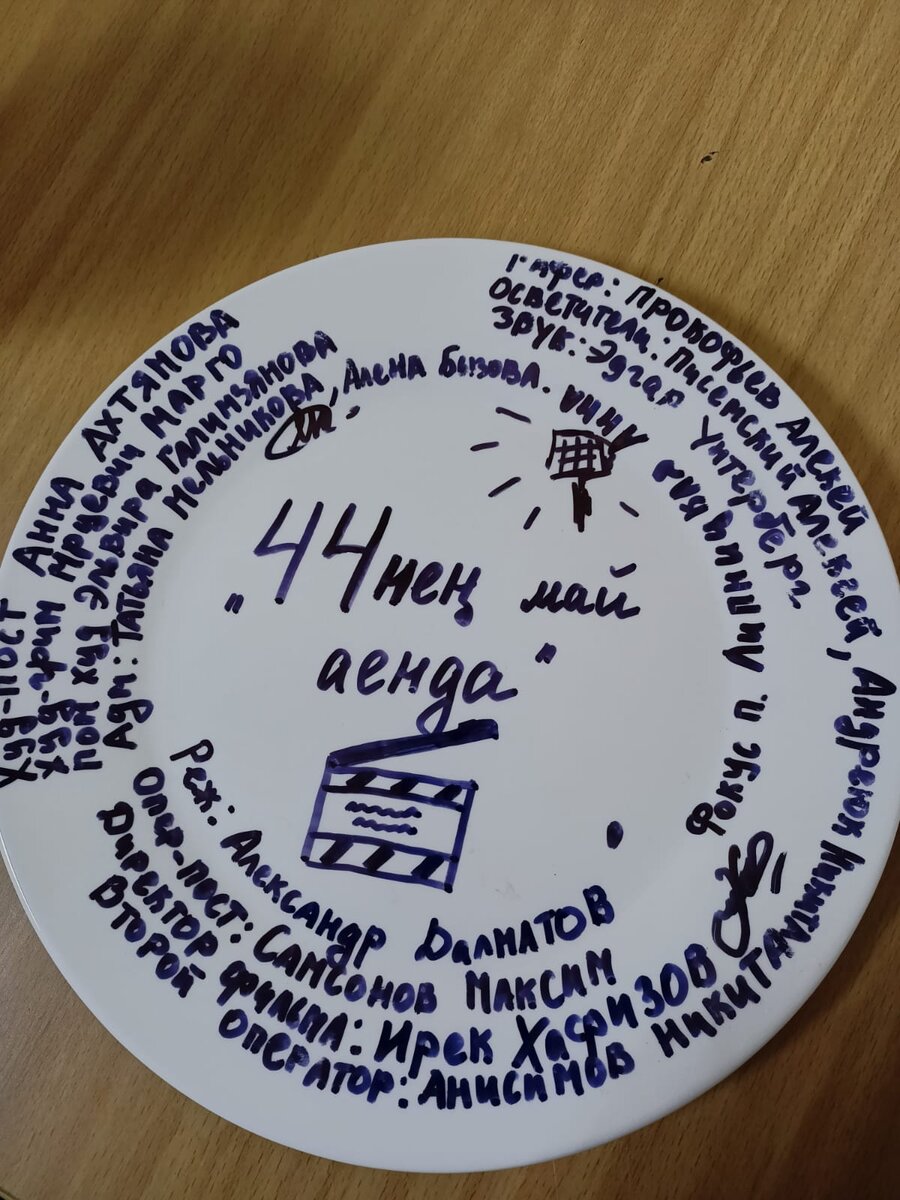 „44нең май
аенда"
Гафер: Прокофьев Алексей
Осветители: Писемский Алексей, Андреюк Никита
Звук: Эдгар Унтерберг.
Худ-пост Анна Ахтямова
Худ-грим Мруевич Марго
Пом худ Эльвира Галимзянова
Адм: Татьяна Мельникова, Алена Бызова.
Анна
Фокус п. Липницкая
Реж: Александр Далматов
Опер-пост: Самсонов Максим
Директор фильма: Ирек Хафизов
Второй оператор: Анисимов Никита